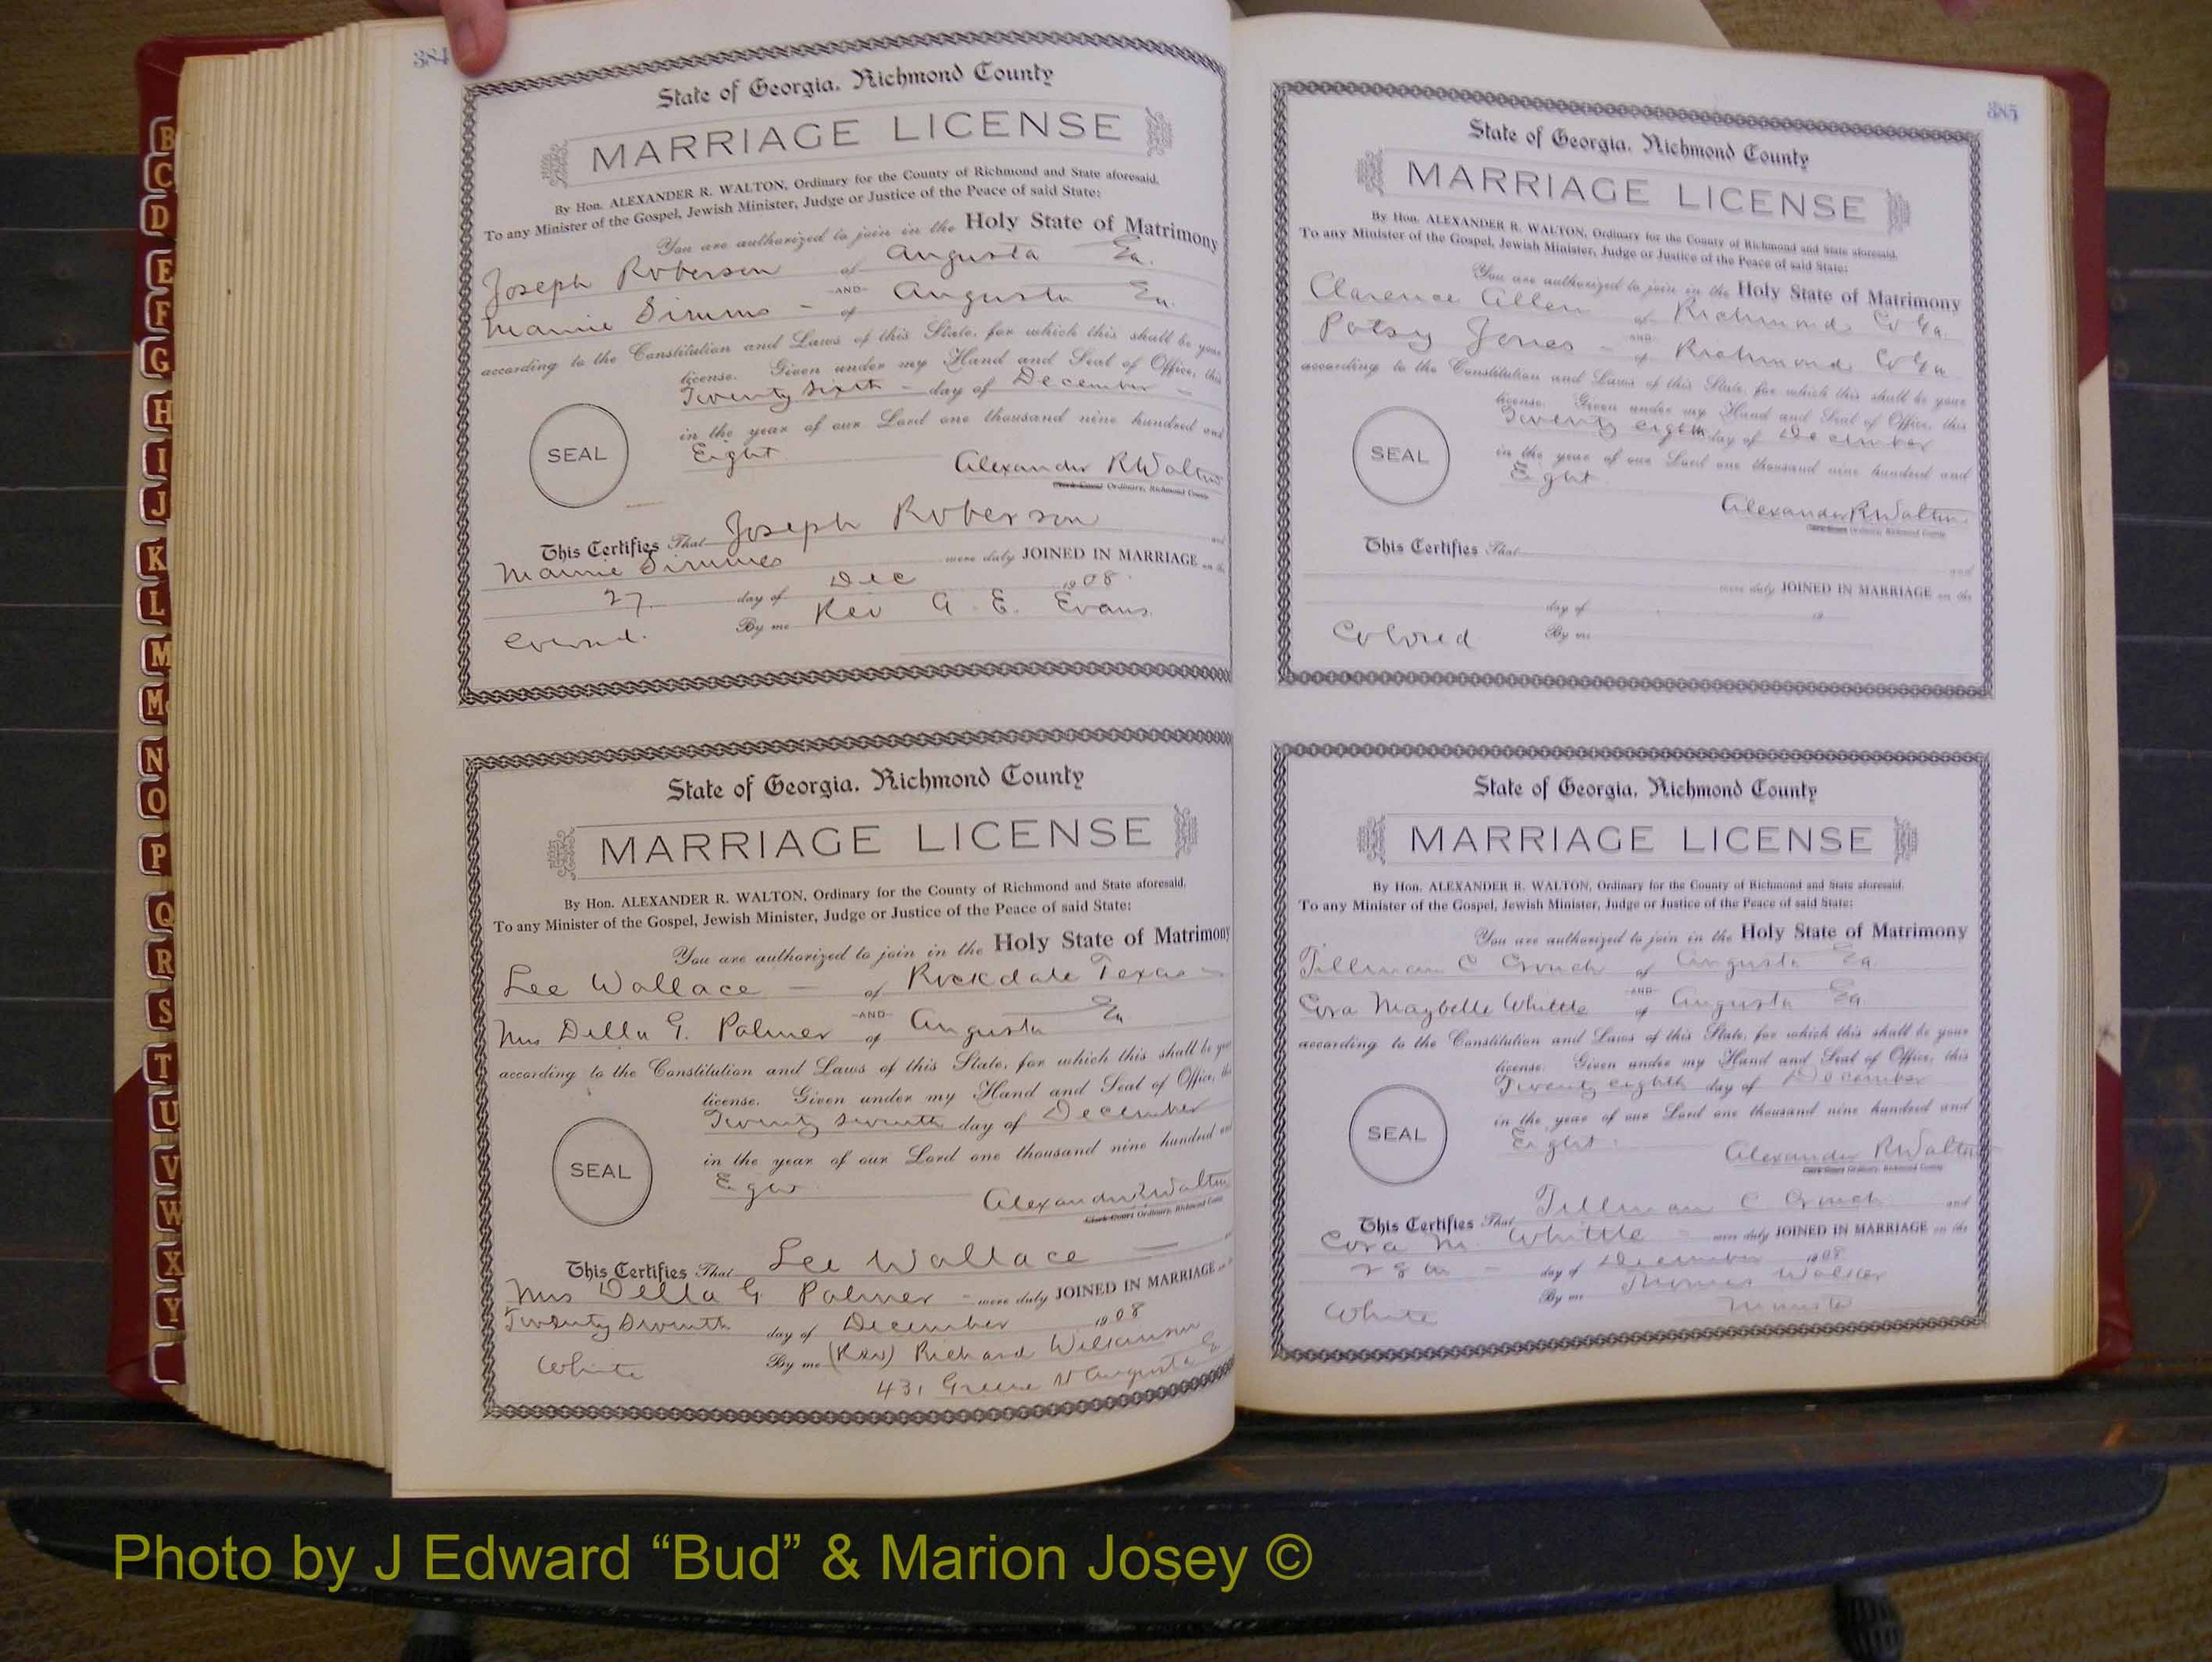 384
State of Georgia, Richmond County
MARRIAGE LICENSE
By Hon. ALEXANDER R. WALTON, Ordinary for the County of Richmond and State aforesaid.
To any Minister of the Gospel, Jewish Minister, Judge or Justice of the Peace of said State:
You are authorized to join in the Holy State of Matrimony
Joseph Roberson of Augusta Ga.
-AND-
Mamie Simms - of Augusta Ga.
according to the Constitution and Laws of this State, for which this shall be your
license. Given under my Hand and Seal of Office, this
Twenty Sixth - day of December -
in the year of our Lord one thousand nine hundred and
SEAL
Eight
Alexander R Walton
Clerk Court Ordinary, Richmond County
This Certifies That Joseph Roberson and
Mamie Simmes were duly JOINED IN MARRIAGE on the
27 day of Dec 1908
By me Rev G. E. Evans.
State of Georgia, Richmond County
MARRIAGE LICENSE
By Hon. ALEXANDER R. WALTON, Ordinary for the County of Richmond and State aforesaid.
To any Minister of the Gospel, Jewish Minister, Judge or Justice of the Peace of said State:
You are authorized to join in the Holy State of Matrimony
Lee Wallace - of Rockdale Texas -
-AND-
Mrs Della G. Palmer of Augusta Ga
according to the Constitution and Laws of this State, for which this shall be your
license. Given under my Hand and Seal of Office, this
Twenty Seventh day of December
in the year of our Lord one thousand nine hundred and
SEAL
Alexander R Walton
Clerk Court Ordinary, Richmond County
This Certifies That Lee Wallace
Mrs Della G Palmer - were duly JOINED IN MARRIAGE
Twenty Seventh day of December 1908
By me (Rev) Richard Wilkinson
White
431 Greene St Augusta G
385
State of Georgia, Richmond County
MARRIAGE LICENSE
By Hon. ALEXANDER R. WALTON, Ordinary for the County of Richmond and State aforesaid.
To any Minister of the Gospel, Jewish Minister, Judge or Justice of the Peace of said State:
You are authorized to join in the Holy State of Matrimony
Clarence Allen of Richmond Co Ga.
-AND-
Patsy Jones - of Richmond Co Ga
according to the Constitution and Laws of this State, for which this shall be your
license. Given under my Hand and Seal of Office, this
Twenty eighth day of December
in the year of our Lord one thousand nine hundred and
SEAL
Eight
Alexander R Walton
Clerk Court Ordinary, Richmond County
This Certifies That and
were duly JOINED IN MARRIAGE on the
day of 19
Colored By me
State of Georgia, Richmond County
MARRIAGE LICENSE
By Hon. ALEXANDER R. WALTON, Ordinary for the County of Richmond and State aforesaid.
To any Minister of the Gospel, Jewish Minister, Judge or Justice of the Peace of said State:
You are authorized to join in the Holy State of Matrimony
Tillman C Crouch of Augusta Ga
-AND-
Cora Maybelle Whittle of Augusta Ga
according to the Constitution and Laws of this State, for which this shall be your
license. Given under my Hand and Seal of Office, this
Twenty eighth day of December
in the year of our Lord one thousand nine hundred and
SEAL
Eight
Alexander R Walton
Clerk Court Ordinary, Richmond County
This Certifies That Tillman C Crouch and
Cora M. Whittle - were duly JOINED IN MARRIAGE on the
28th - day of December 1908
By me Thomas Walker
White
Minister
B
C
D
E
F
G
H
I
J
K
L
M
Mc
N
O
P
Q
R
S
T
U
V
W
X
Y
Photo by J Edward “Bud” & Marion Josey ©